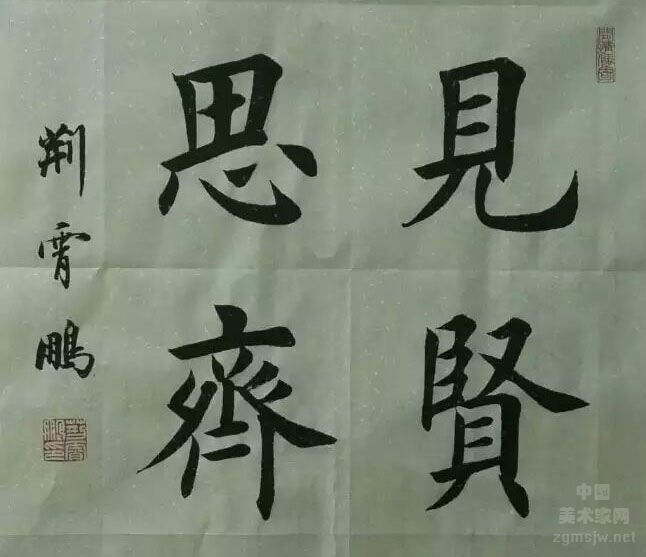 見賢
思齊
荆霄鵬
中国
美术家网
zgmsjw.net